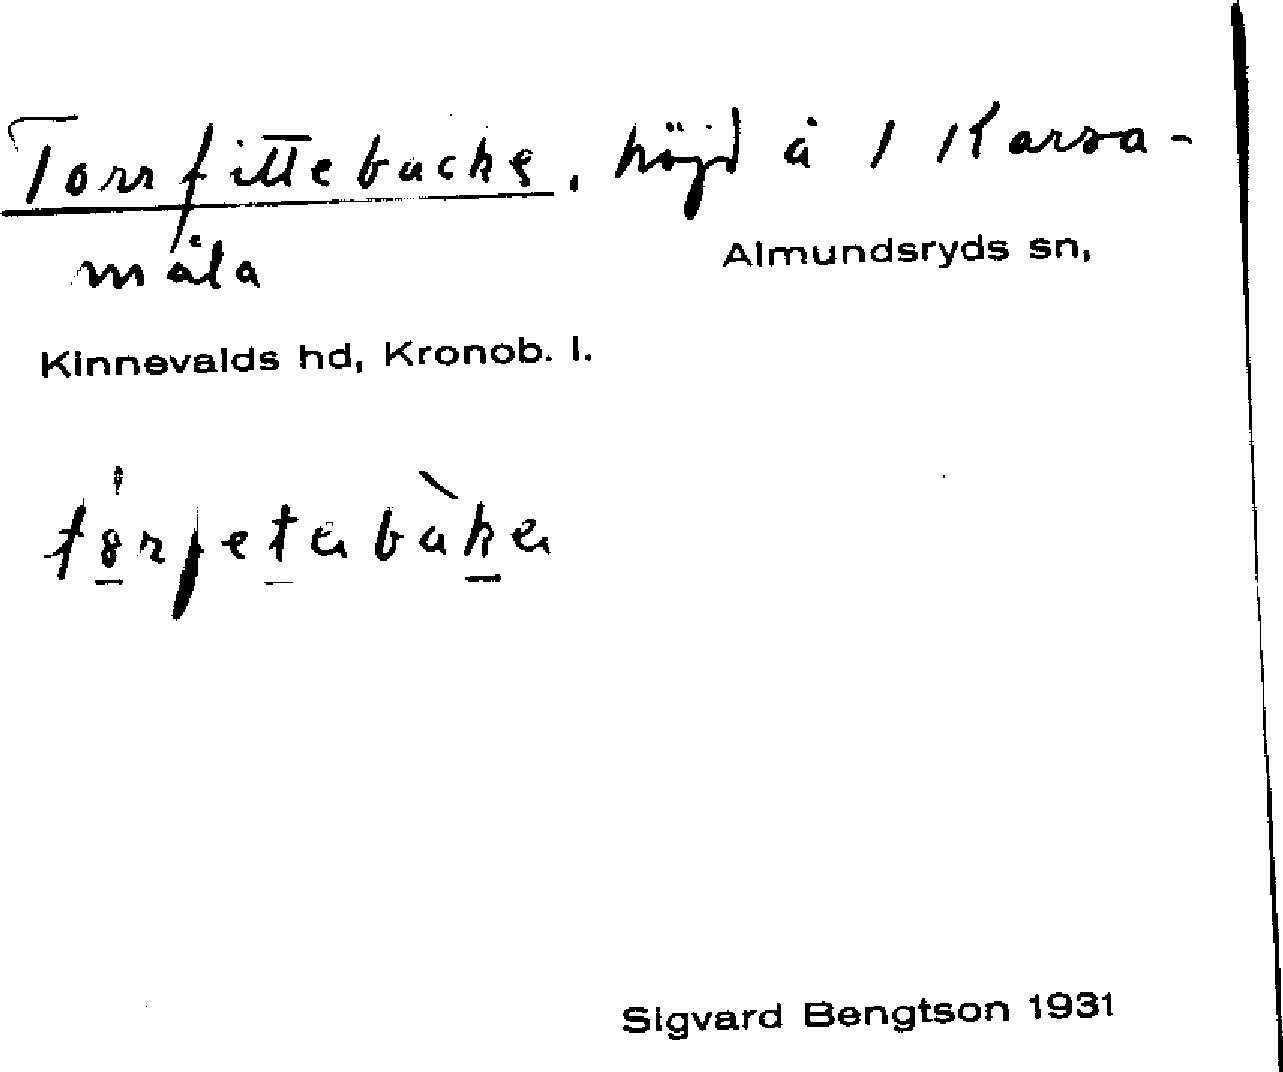 Torrfittebacke, höjd å 1 Karsa-
måla
Almundsryds sn,
Kinnevalds hd, Kronob. l.
Sigvard Bengtson 1931